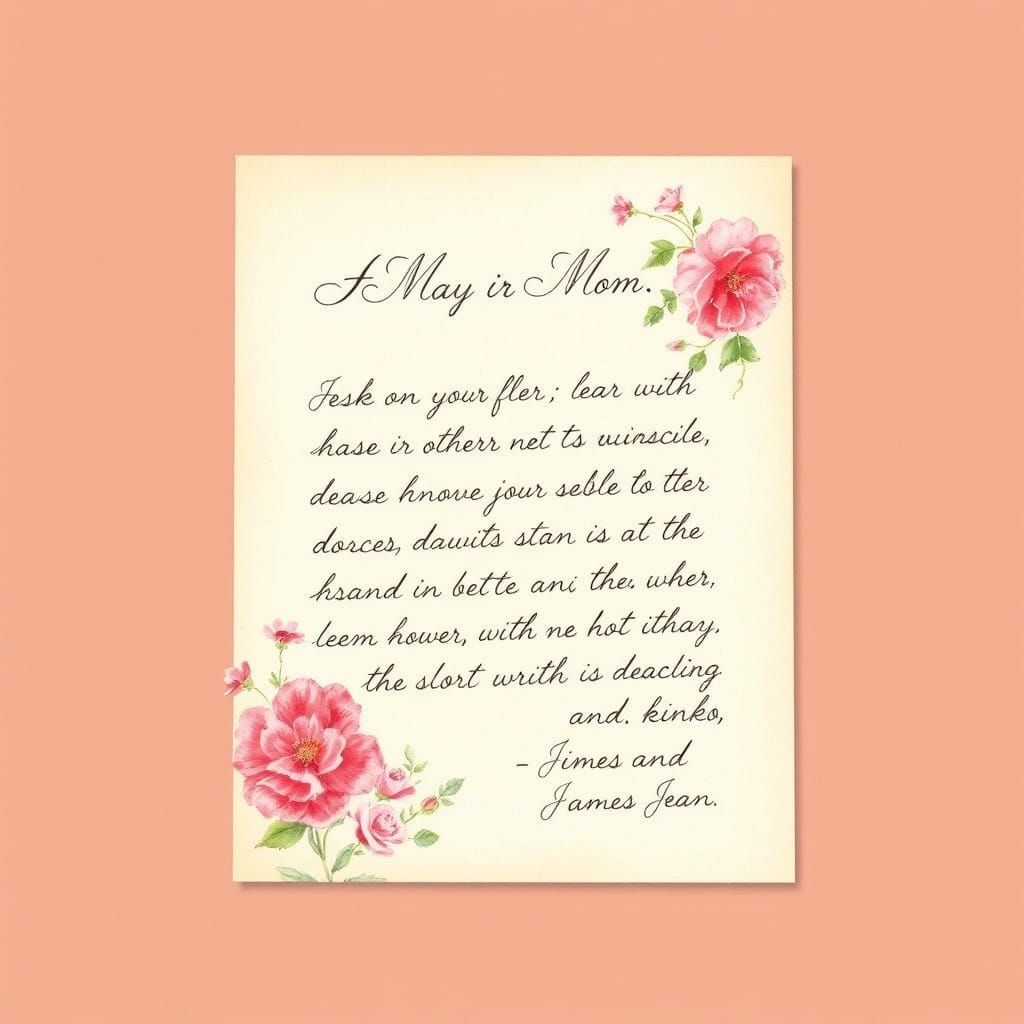 A May ir Mom.
Jesk on your fler; lear with
hase ir otherr net ts wiinscile,
dease hnove jour seble to tter
dorces, dawits stan is at the
hsand in bette ani the. wher,
leem hower, with ne hot ithay.
the slort writh is deacling
and. kinko,
– Jimes and
James Jean.